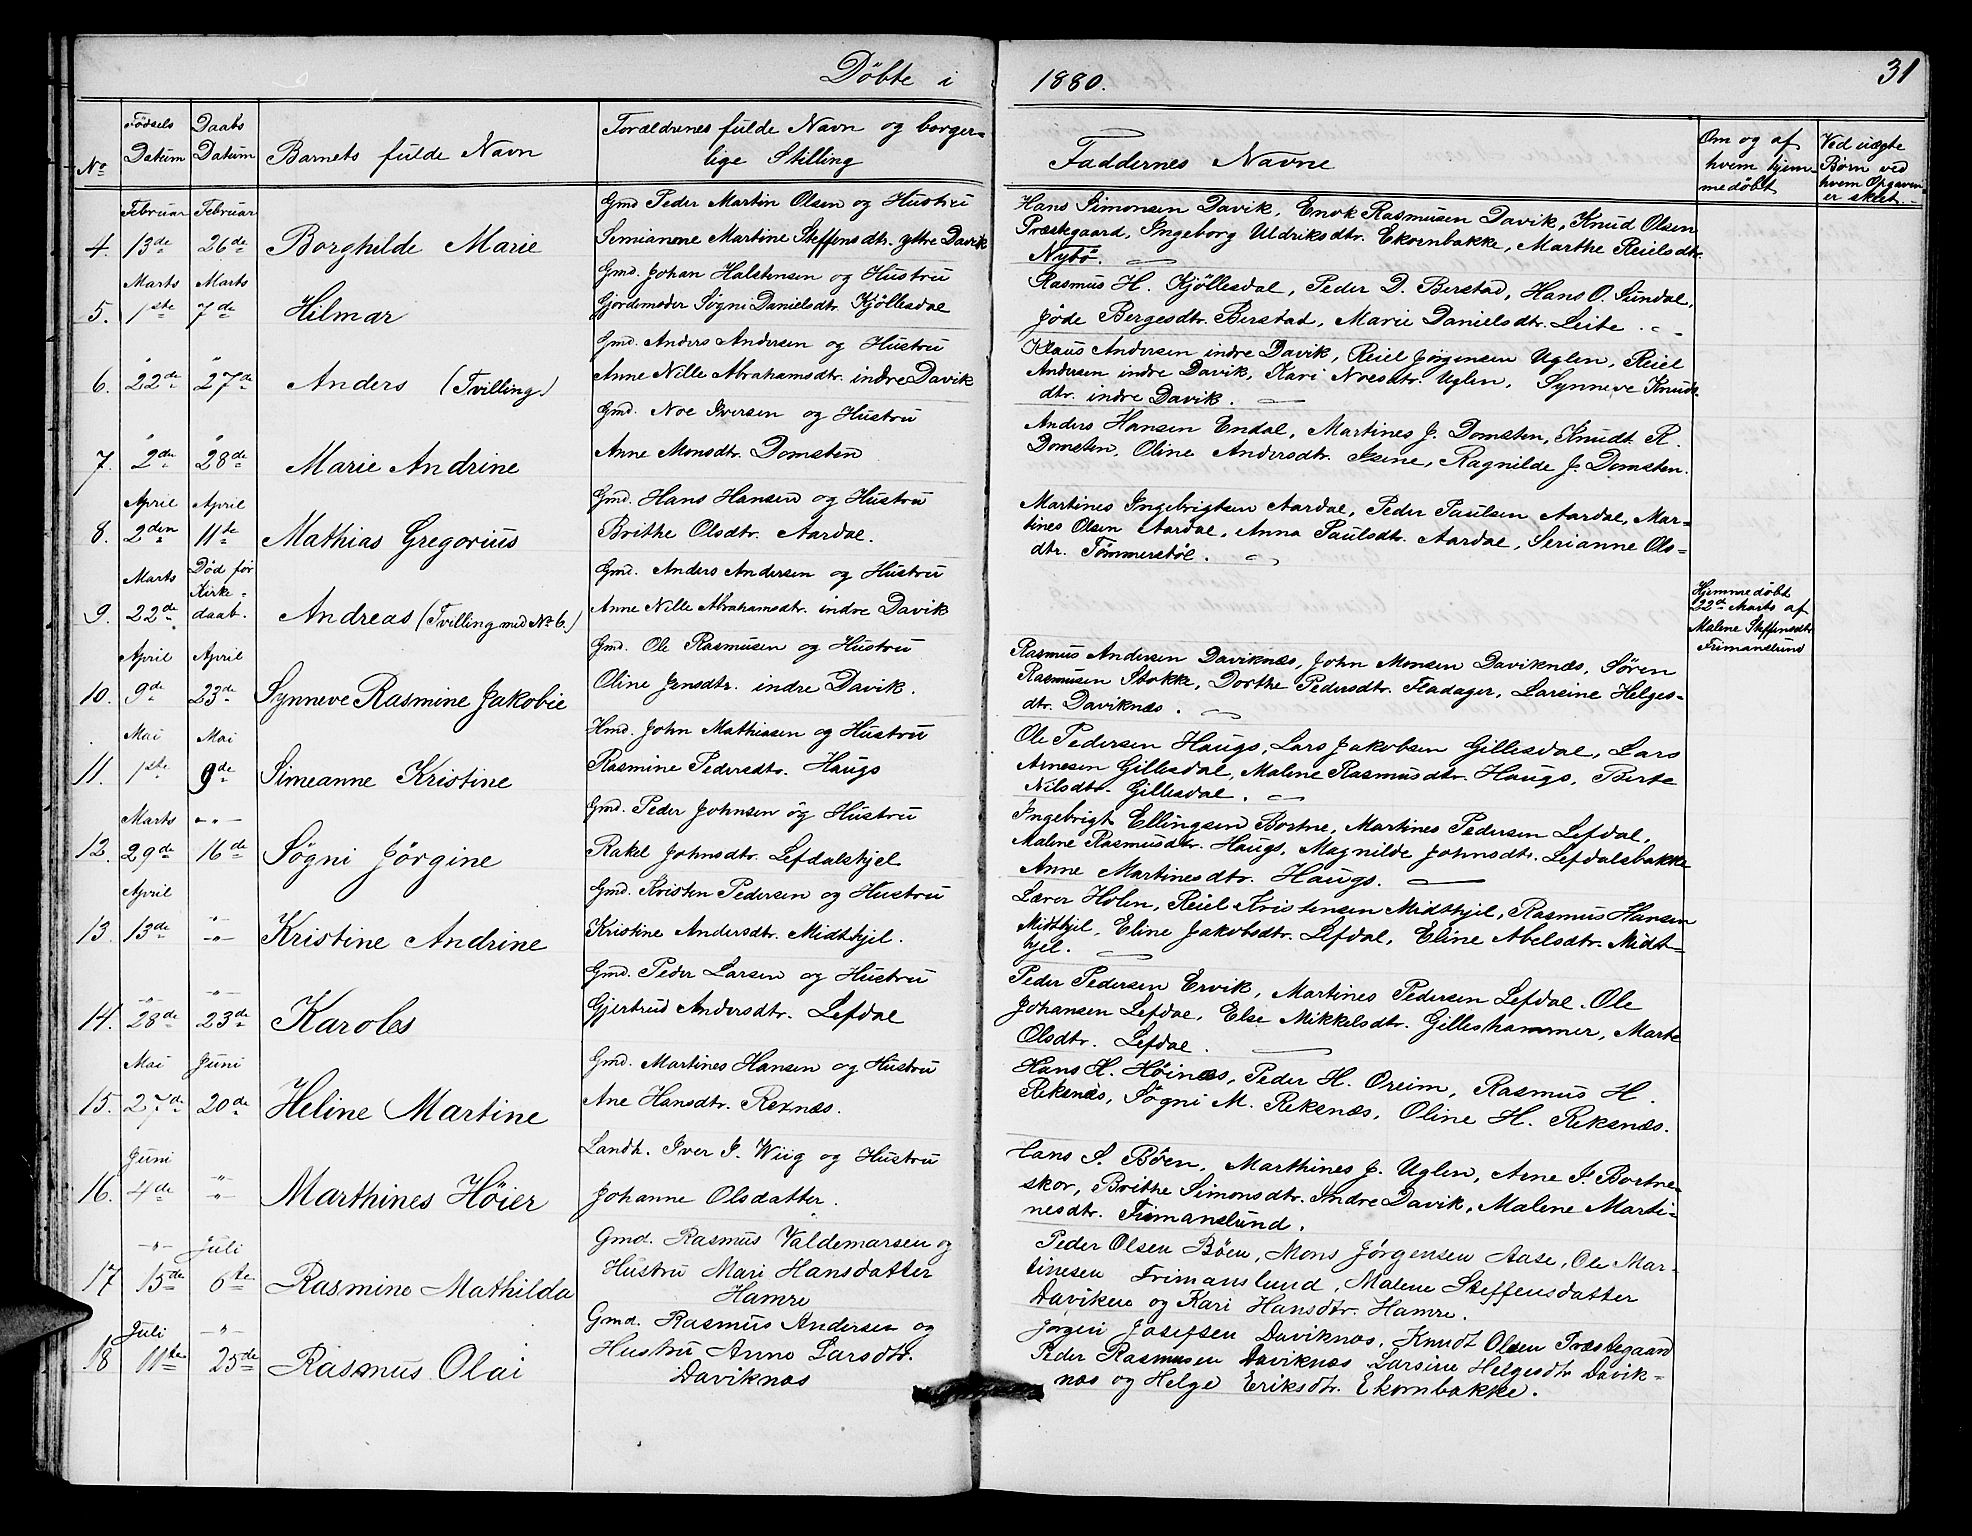 Döbte i 1880. 31
No
Födsels Datum
Daabs Datum
Barnets fulde Navn
Forældrenes fulde Navn og borger-
lige Stilling
Faddernes Navne
Om og af
hvem hjem-
medöbt
Ved uægte
Børn ved
hvem Opgaven
er skeet.
Februar Februar
4. 13de 26de Borghilde Marie
Gmd Peder Martin Olsen og Hustru
Simianene Martine Steffensdtr. ytre Davik
Hans Simonsen Davik, Enok Rasmusen Davik, Knud Olsen
Præstegaard, Ingeborg Uldriksdtr. Ekornbakke, Marthe Reielsdtr.
Nybö.
Marts Marts
5. 1ste 7de Hilmar
Gmd. Johan Halstensen og Hustru
Gjordemoder Søgni Danielsdtr. Kjöllesdal
Rasmus H. Kjöllesdal, Peder D. Berstad, Hans O. Sundal,
Jöde Bergesdtr. Berstad, Marie Danielsdtr. Leite.
6. 22de 27de Anders (Tvilling)
Gmd. Anders Andersen og Hustru
Anne Nille Abrahamsdtr. indre Davik
Klaus Andersen indre Davik, Reiel Jørgensen Uglen, Reiel
Andersen indre Davik, Kari Noesdtr. Uglen, Synneve Knuds
dtr. indre Davik.
7. 2de 28de Marie Andrine
Gmd. Noe Iversen og Hustru
Anne Monsdtr. Domsten
Anders Hansen Endal, Martines J. Domsten, Knudt R.
Domsten, Oline Andersdtr. Isene, Ragnilde J. Domsten.
April April
8. 2den 11te Mathias Gregorius
Gmd. Hans Hansen og Hustru
Brithe Olsdtr. Aardal.
Martines Ingebrigtsen Aardal, Peder Paulsen Aardal, Mar-
tines Olsen Aardal, Anna Paulsdtr. Aardal, Serianne Ols-
dtr. Tömmerstöl.
Marts Död før
Kirke-
9. 22de daab. Andreas (Tvilling med No 6.)
Gmd. Anders Andersen og Hustru
Anne Nille Abrahamsdtr. indre Davik
Hjemmedöbt
22de Marts af
Malene Steffensdtr
Frimanslund
April April
10. 9de 23de Synneve Rasmine Jakobie
Gmd. Ole Rasmusen og Hustru
Oline Jensdtr. indre Davik.
Rasmus Andersen Daviknæs, John Monsen Daviknæs, Søren
Rasmusen Stokke, Dorthe Pedersdtr. Fladager, Larsine Helges-
dtr. Daviknæs.
Mai Mai
11. 1ste 9de Simeanne Kristine
Hmd. John Mathiasen og Hustru
Rasmine Pedersdtr. Haugs
Ole Pedersen Haugs, Lars Jakobsen Gillesdal, Lars
Arnesen Gillesdal, Malene Rasmusdtr. Haugs, Berte
Nilsdtr. Gillesdal.
Marts -"-
12. 29de 16de Søgni Jörgine
Gmd. Peder Johnsen og Hustru
Rakel Johnsdtr. Lefdalshjel
Ingebrigt Ellingsen Bortne, Martines Pedersen Lefdal,
Malene Rasmusdtr. Haugs, Magnilde Johnsdtr. Lefdalsbakke
Anne Martinesdtr. Haugs.
April -"-
13. 13de -"- Kristine Andrine
Gmd. Kristen Pedersen og Hustru
Kristine Andersdtr. Midthjel.
Lærer Holen, Reiel Kristensen Midthjel, Rasmus Hansen
Midthjel, Eline Jakobsdtr. Lefdal, Eline Abelsdtr. Midt-
hjel.
-"- -"-
14. 28de 23de Karoles
Gmd. Peder Larsen og Hustru
Gjertrud Andersdtr. Lefdal
Peder Pedersen Ervik, Martines Pedersen Lefdal. Ole
Johansen Lefdal, Else Mikkelsdtr. Gilleshammer, Marte
Olsdtr. Lefdal.
Mai Juni
15. 27de 20de Heline Martine
Gmd. Martines Hansen og Hustru
Ane Hansdtr. Rexnæs.
Hans H. Höinæs, Peder H. Oreim, Rasmus H.
Reksnæs, Søgni M. Reksnæs, Oline H. Reksnæs.
Juni -"-
16. 4de -"- Marthines Höier
Landh. Iver I. Wiig og Hustru
Johanne Olsdatter.
Hans S. Böen, Marthines J. Uglen, Arne I. Bortne-
skor, Brithe Simonsdtr. Indre Davik, Malene Marti-
nesdtr. Frimanslund.
-"- Juli
17 15de 6te Rasmine Mathilda
Gmd. Rasmus Valdemarsen og
Hustru Mari Hansdatter
Hamre
Peder Olsen Böen, Mons Jørgensen Aase, Ole Mar-
tinesen Frimanslund, Malene Steffensdatter
Daviken og Kari Hansdtr. Hamre.
Juli -"-
18 11te 25de Rasmus Olai
Gmd. Rasmus Andersen og
Hustru Anne Larsdtr.
Daviknæs
Jørgen Josefsen Daviknæs, Knudt Olsen Præstegaard
Peder Rasmusen Daviknæs Larsine Helgesdtr Davik-
næs og Helge Eriksdtr. Ekornbakke.